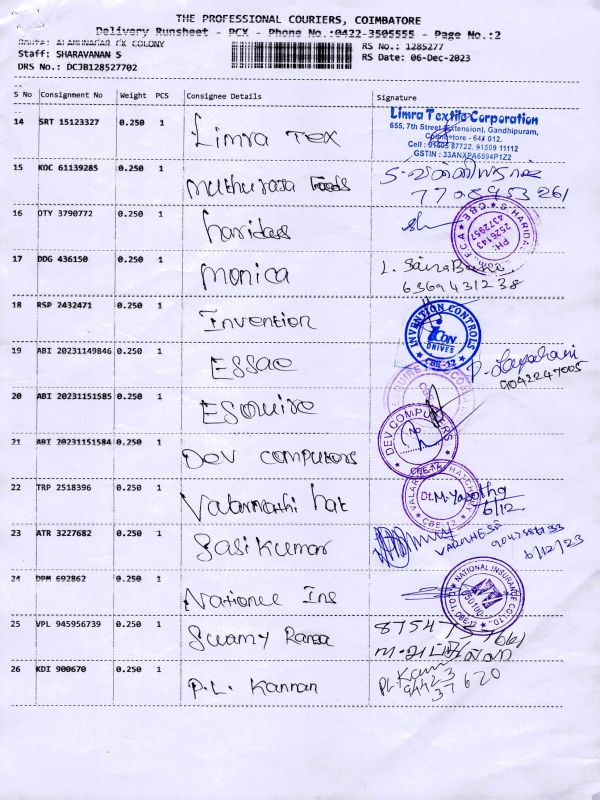 THE PROFESSIONAL COURIERS, COIMBATORE
Delivery Runsheet - PCX - Phone No.:0422-3505555 - Page No.:2
Route: ALAMUNAGAR CK COLONY
RS No.: 1285277
Staff: SHARAVANAN S
RS Date: 06-Dec-2023
DRS No.: DCJB128527702
S No Consignment No Weight PCS Consignee Details Signature
14 SRT 15123327 0.250 1 Limra Tex
Limra Textile Corporation
655, 7th Street (Extension), Gandhipuram,
Coimbatore - 641 012.
Cell : 87722, 91509 11112
GSTIN : 33ANXPA6594P1Z2
15 KOC 61139285 0.250 1 muthurasa Foods
16 OTY 3790772 0.250 1 haridass
S.HARIDA
F.C.A CBE
PH:
2526143
4372957
17 DDG 436150 0.250 1 monica
6369431238
18 RSP 2432471 0.250 1 Invention
INVENTION CONTROLS
ICON
DRIVES
CBE-12
19 ABI 20231149846 0.250 1 ESSAE
9042247005
20 ABI 20231151585 0.250 1 ESQUIRE
21 ABT 20231151584 0.250 1 DEV COMPUTERS
DEV COMPUTERS
22 TRP 2518396 0.250 1 Valarmathi hat
CBE-12
6/12
23 ATR 3227682 0.250 1 Sasikumar
6/12/23
24 DPM 692862 0.250 1 National Ins
NATIONAL INSURANCE CO.LTD.,
25 VPL 945956739 0.250 1 Swamy Ransa
26 KDI 900670 0.250 1 P.L. Kannan
PL Kann
94423
37620